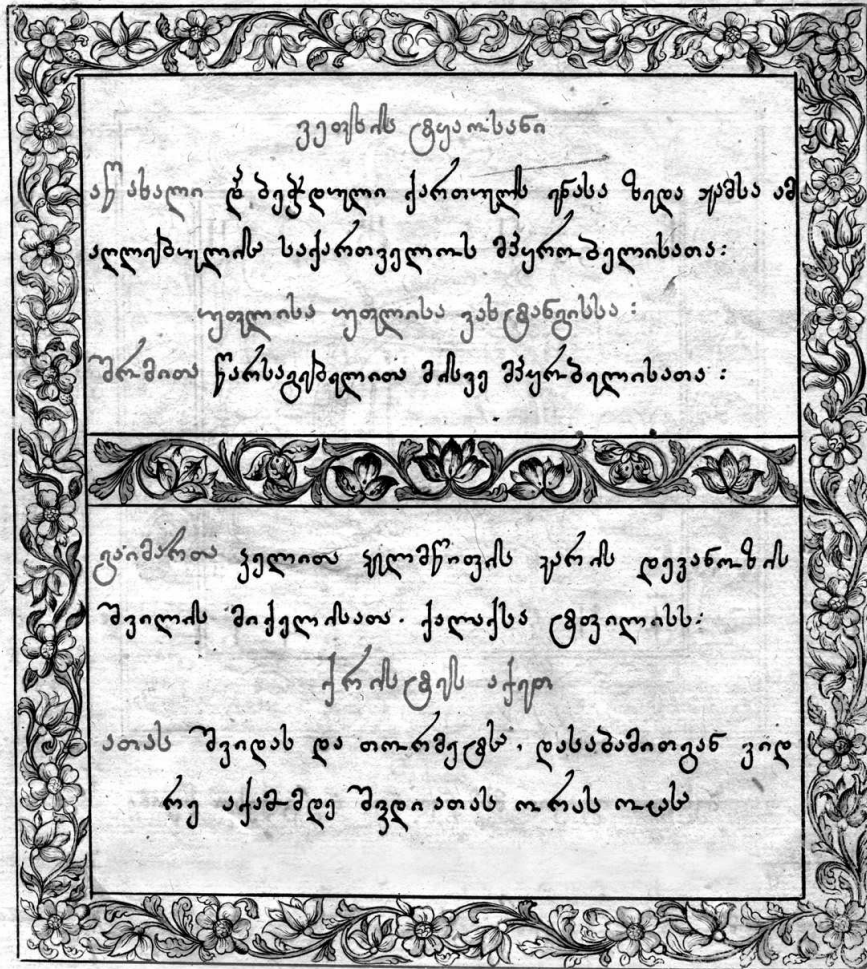 ვეფხის ტყაოსანი
აწ ახალი დ ბეჭდული ქართულს ენასა ზედა ჟამსა ამ
აღლებულის საქართველოს მპყრობელისათა:
უფლისა უფლისა ვახტანგისსა:
შრომითა წარსაგებელითა მისვე მპყრობელისათა:
გაიმართა ჴელითა ჴელმწიფის კარის დეკანოზის
შვილის მიქელისათა. ქალაქსა ტფილისს:
ქრისტეს აქეთ
ათას შვიდას და თორმეტსა. დასაბამითგან ვიდ
რე აქამომდე შვდი ათას ორას ოცსა